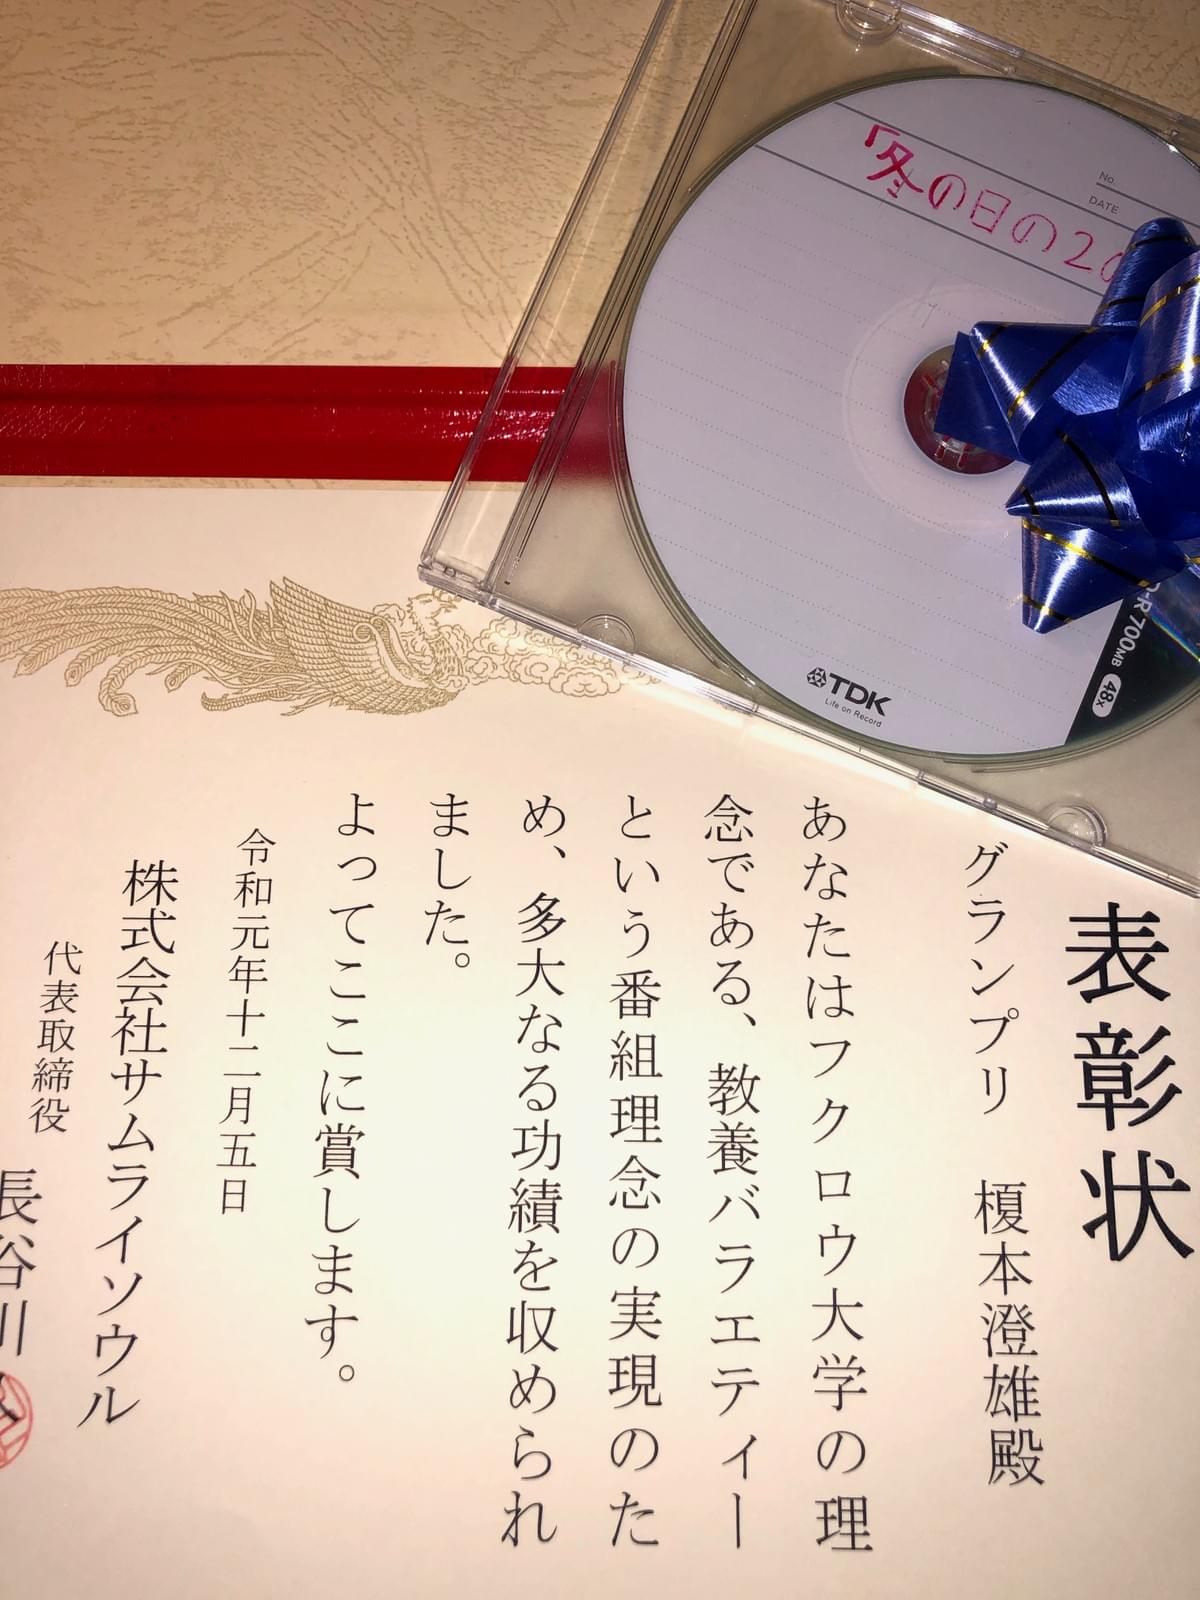 「冬の日の20
No.
DATE
TDK
Life on Record
-R 700MB
48x
表彰状
グランプリ 榎本澄雄殿
あなたはフクロウ大学の理
念である、教養バラエティー
という番組理念の実現のた
め、多大なる功績を収められ
ました。
よってここに賞します。
令和元年十二月五日
株式会社サムライソウル
代表取締役 長谷川